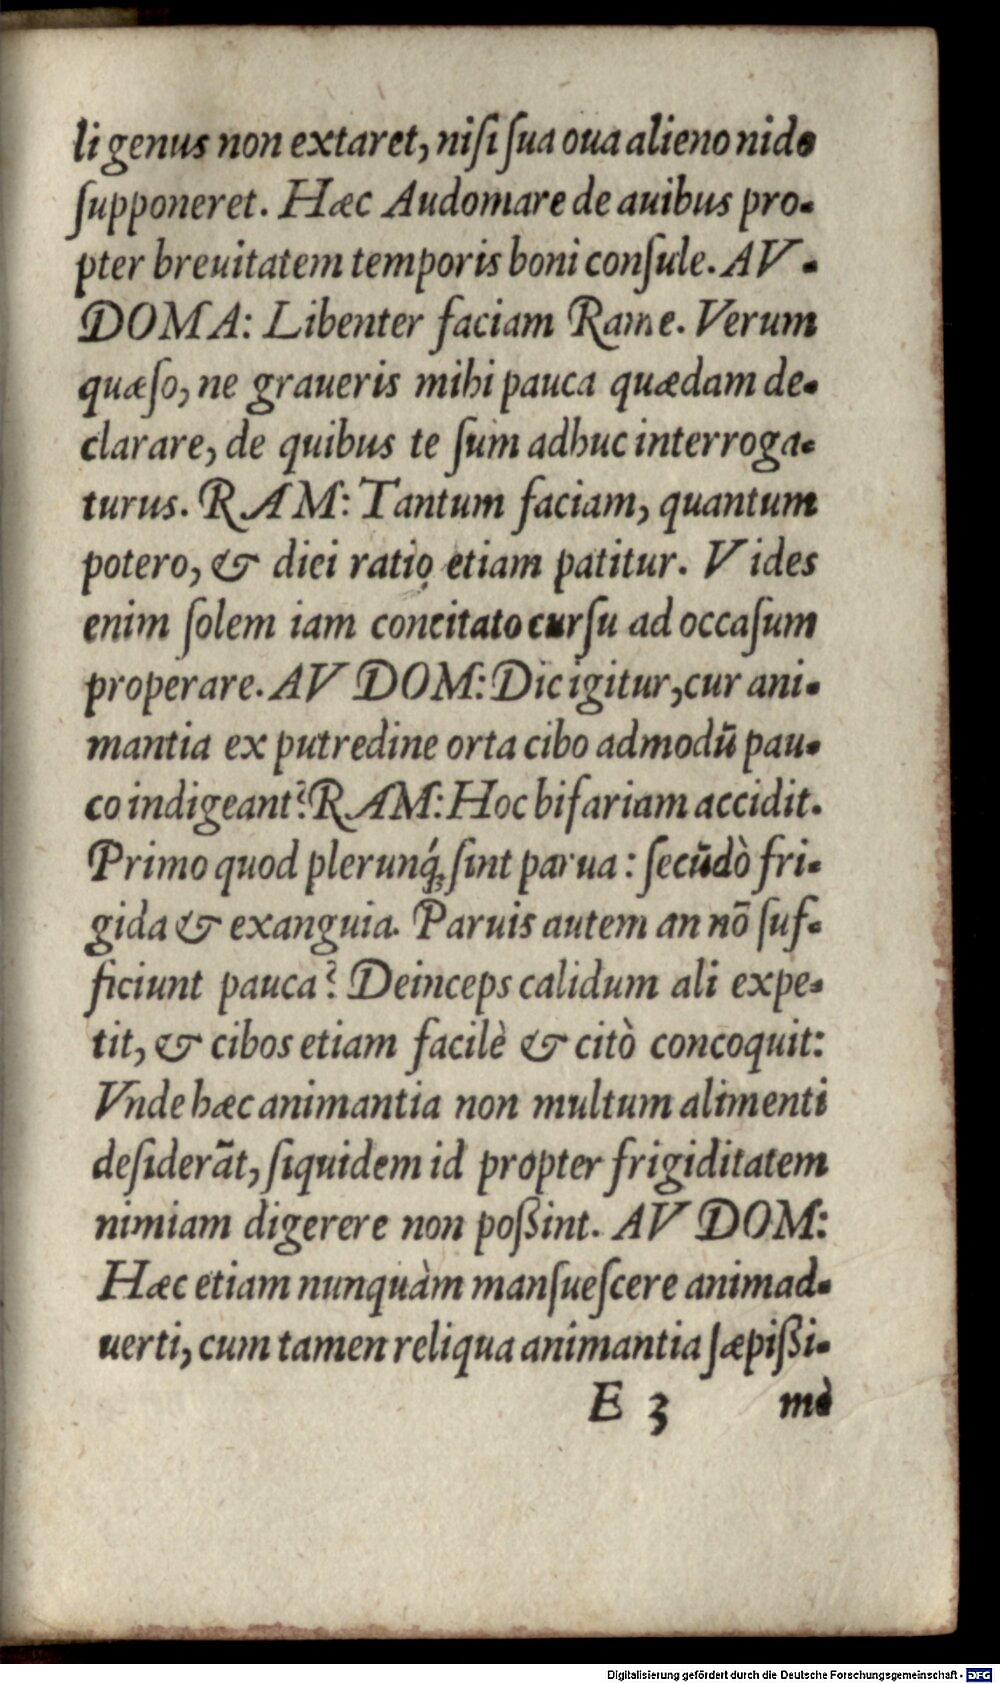 li genus non extaret, niſi ſua oua alieno nido
ſupponeret. Hæc Audomare de auibus pro-
pter breuitatem temporis boni conſule. AV-
DOMA: Libenter faciam Rame. Verum
quæſo, ne graueris mihi pauca quædam de-
clarare, de quibus te ſum adhuc interroga-
turus. RAM: Tantum faciam, quantum
potero, & diei ratio etiam patitur. Vides
enim ſolem iam concitato curſu ad occaſum
properare. AVDOM: Dic igitur, cur ani-
mantia ex putredine orta cibo admodū pau-
co indigeant? RAM: Hoc bifariam accidit.
Primo quod plerunq́; ſint parua: ſecūdò fri-
gida & exanguia. Paruis autem an nō ſuf-
ficiunt pauca? Deinceps calidum ali expe-
tit, & cibos etiam facilè & citò concoquit:
Vnde hæc animantia non multum alimenti
deſiderāt, ſiquidem id propter frigiditatem
nimiam digerere non poßint. AVDOM:
Hæc etiam nunquàm manſueſcere animad-
uerti, cum tamen reliqua animantia ſæpißi-
E 3 mè
Digitalisierung gefördert durch die Deutsche Forschungsgemeinschaft - DFG